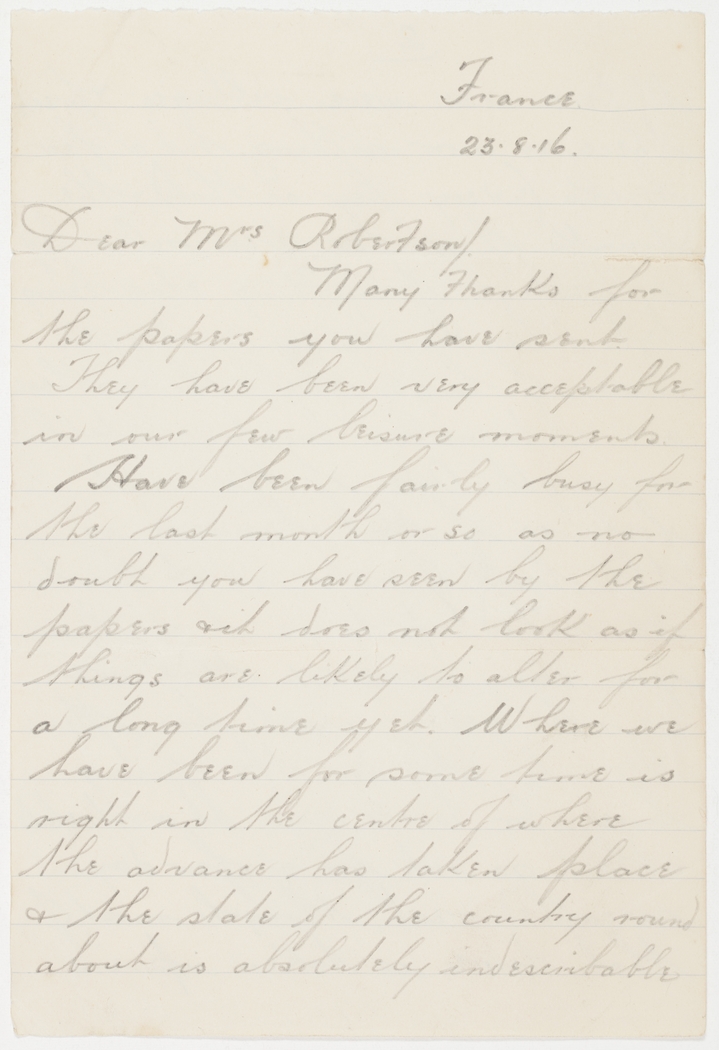 France.
23.8.16.
Dear Mrs Robertson/
Many thanks for
the papers you have sent.
They have been very acceptable
in our few leisure moments.
Have been fairly busy for
the last month or so as no
doubt you have seen by the
papers & it does not look as if
things are likely to alter for
a long time yet. Where we
have been for some time is
right in the centre of where
the advance has taken place
& the state of the country round
about is absolutely indescribable